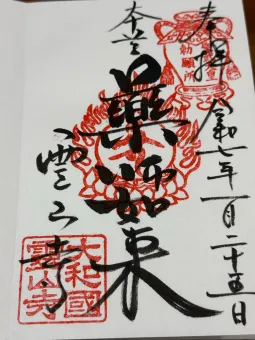 奉拝
勅願所
令和七年一月二十五日
本尊
薬師如来
霊山寺
大和國
霊山寺